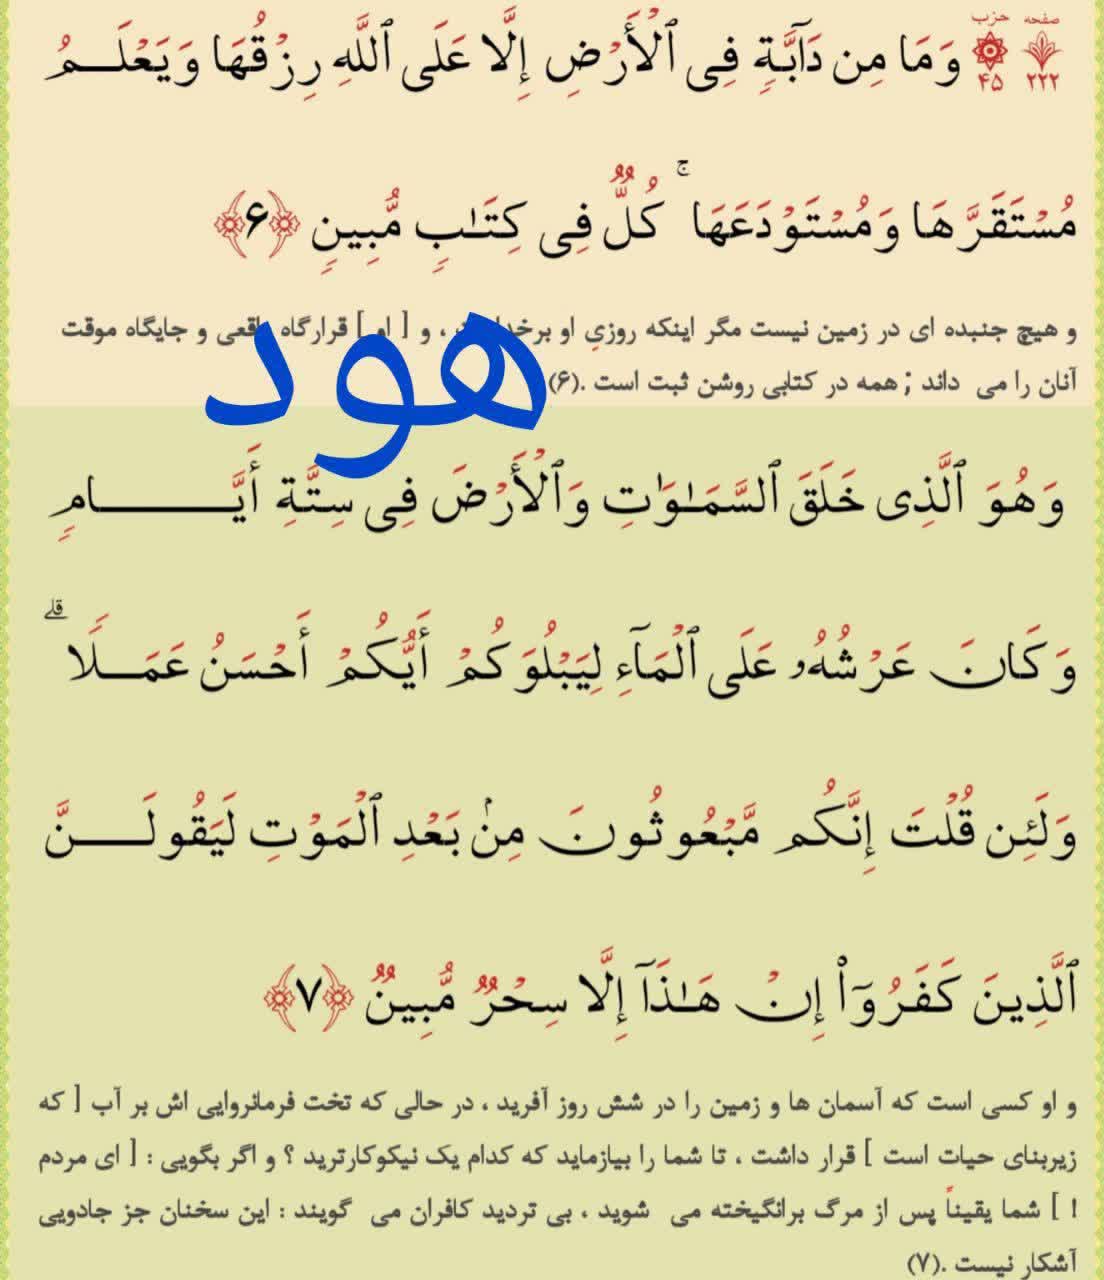 صفحه حزب
۲۲۲ ۴۵
وَمَا مِن دَآبَّةٍ فِى ٱلْأَرْضِ إِلَّا عَلَى ٱللَّهِ رِزْقُهَا وَيَعْلَمُ
مُسْتَقَرَّهَا وَمُسْتَوْدَعَهَا ۚ كُلٌّ فِى كِتَـٰبٍ مُّبِينٍ ﴿۶﴾
و هیچ جنبده ای در زمین نیست مگر اینکه روزیِ او برخداست ، و [ او ] قرارگاه واقعی و جایگاه موقت
آنان را می داند ; همه در کتابی روشن ثبت است .(۶)
هود
وَهُوَ ٱلَّذِى خَلَقَ ٱلسَّمَـٰوَٰتِ وَٱلْأَرْضَ فِى سِتَّةِ أَيَّامٍ
وَكَانَ عَرْشُهُۥ عَلَى ٱلْمَآءِ لِيَبْلُوَكُمْ أَيُّكُمْ أَحْسَنُ عَمَلًا ۗ
وَلَئِن قُلْتَ إِنَّكُم مَّبْعُوثُونَ مِنۢ بَعْدِ ٱلْمَوْتِ لَيَقُولَنَّ
ٱلَّذِينَ كَفَرُوٓا۟ إِنْ هَـٰذَآ إِلَّا سِحْرٌ مُّبِينٌ ﴿۷﴾
و او کسی است که آسمان ها و زمین را در شش روز آفرید ، در حالی که تخت فرمانروایی اش بر آب [ که
زیربنای حیات است ] قرار داشت ، تا شما را بیازماید که کدام یک نیکوکارترید ؟ و اگر بگویی : [ ای مردم
! ] شما یقیناً پس از مرگ برانگیخته می شوید ، بی تردید کافران می گویند : این سخنان جز جادویی
آشکار نیست .(۷)